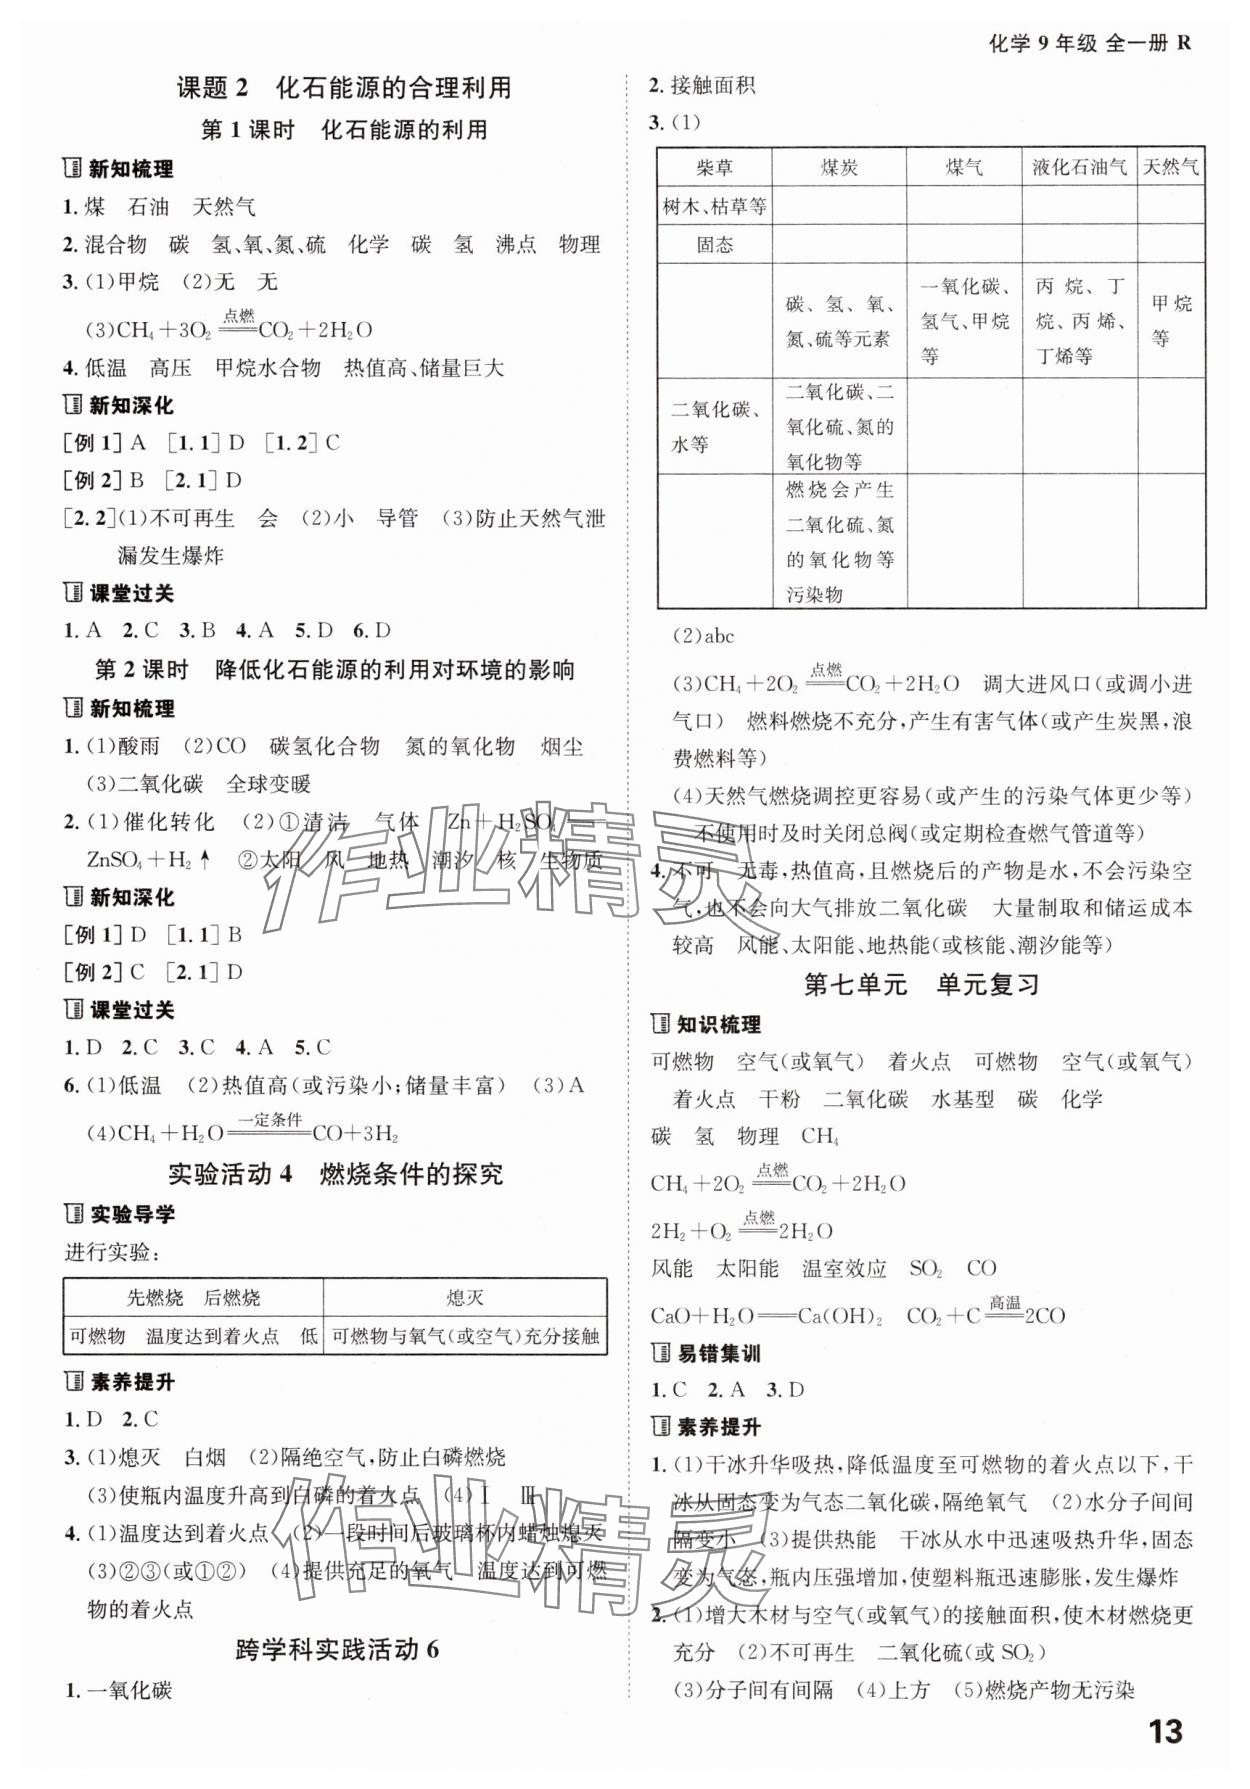 化学 9 年级 全一册 R
课题 2 化石能源的合理利用
第 1 课时 化石能源的利用
新知梳理
1. 煤 石油 天然气
2. 混合物 碳 氢、氧、氮、硫 化学 碳 氢 沸点 物理
3. (1)甲烷 (2)无 无
(3)CH₄+3O₂ 点燃══ CO₂+2H₂O
4. 低温 高压 甲烷水合物 热值高、储量巨大
新知深化
[例 1] A [1.1] D [1.2] C
[例 2] B [2.1] D
[2.2](1)不可再生 会 (2)小 导管 (3)防止天然气泄
漏发生爆炸
课堂过关
1. A 2. C 3. B 4. A 5. D 6. D
第 2 课时 降低化石能源的利用对环境的影响
新知梳理
1. (1)酸雨 (2)CO 碳氢化合物 氮的氧化物 烟尘
(3)二氧化碳 全球变暖
2. (1)催化转化 (2)①清洁 气体 Zn+H₂SO₄══
ZnSO₄+H₂↑ ②太阳 风 地热 潮汐 核 生物质
新知深化
[例 1] D [1.1] B
[例 2] C [2.1] D
课堂过关
1. D 2. C 3. C 4. A 5. C
6. (1)低温 (2)热值高(或污染小;储量丰富) (3)A
(4)CH₄+H₂O 一定条件══ CO+3H₂
实验活动 4 燃烧条件的探究
实验导学
进行实验:
先燃烧 后燃烧 熄灭
可燃物 温度达到着火点 低 可燃物与氧气(或空气)充分接触
素养提升
1. D 2. C
3. (1)熄灭 白烟 (2)隔绝空气,防止白磷燃烧
(3)使瓶内温度升高到白磷的着火点 (4)Ⅰ Ⅲ
4. (1)温度达到着火点 (2)一段时间后玻璃杯内蜡烛熄灭
(3)②③(或①②) (4)提供充足的氧气 温度达到可燃
物的着火点
跨学科实践活动 6
1. 一氧化碳
2. 接触面积
3. (1)
柴草 煤炭 煤气 液化石油气 天然气
树木、枯草等
固态
碳、氢、氧、氮、硫等元素 一氧化碳、氢气、甲烷等 丙烷、丁烷、丙烯、丁烯等 甲烷等
二氧化碳、水等 二氧化碳、二氧化硫、氮的氧化物等
燃烧会产生二氧化硫、氮的氧化物等污染物
(2)abc
(3)CH₄+2O₂ 点燃══ CO₂+2H₂O 调大进风口(或调小进
气口) 燃料燃烧不充分,产生有害气体(或产生炭黑,浪
费燃料等)
(4)天然气燃烧调控更容易(或产生的污染气体更少等)
不使用时及时关闭总阀(或定期检查燃气管道等)
4. 不可 无毒,热值高,且燃烧后的产物是水,不会污染空
气,也不会向大气排放二氧化碳 大量制取和储运成本
较高 风能、太阳能、地热能(或核能、潮汐能等)
第七单元 单元复习
知识梳理
可燃物 空气(或氧气) 着火点 可燃物 空气(或氧气)
着火点 干粉 二氧化碳 水基型 碳 化学
碳 氢 物理 CH₄
CH₄+2O₂ 点燃══ CO₂+2H₂O
2H₂+O₂ 点燃══ 2H₂O
风能 太阳能 温室效应 SO₂ CO
CaO+H₂O══Ca(OH)₂ CO₂+C 高温══ 2CO
易错集训
1. C 2. A 3. D
素养提升
1. (1)干冰升华吸热,降低温度至可燃物的着火点以下,干
冰从固态变为气态二氧化碳,隔绝氧气 (2)水分子间间
隔变小 (3)提供热能 干冰从水中迅速吸热升华,固态
变为气态,瓶内压强增加,使塑料瓶迅速膨胀,发生爆炸
2. (1)增大木材与空气(或氧气)的接触面积,使木材燃烧更
充分 (2)不可再生 二氧化硫(或 SO₂)
(3)分子间有间隔 (4)上方 (5)燃烧产物无污染
13
作业精灵
作业精灵